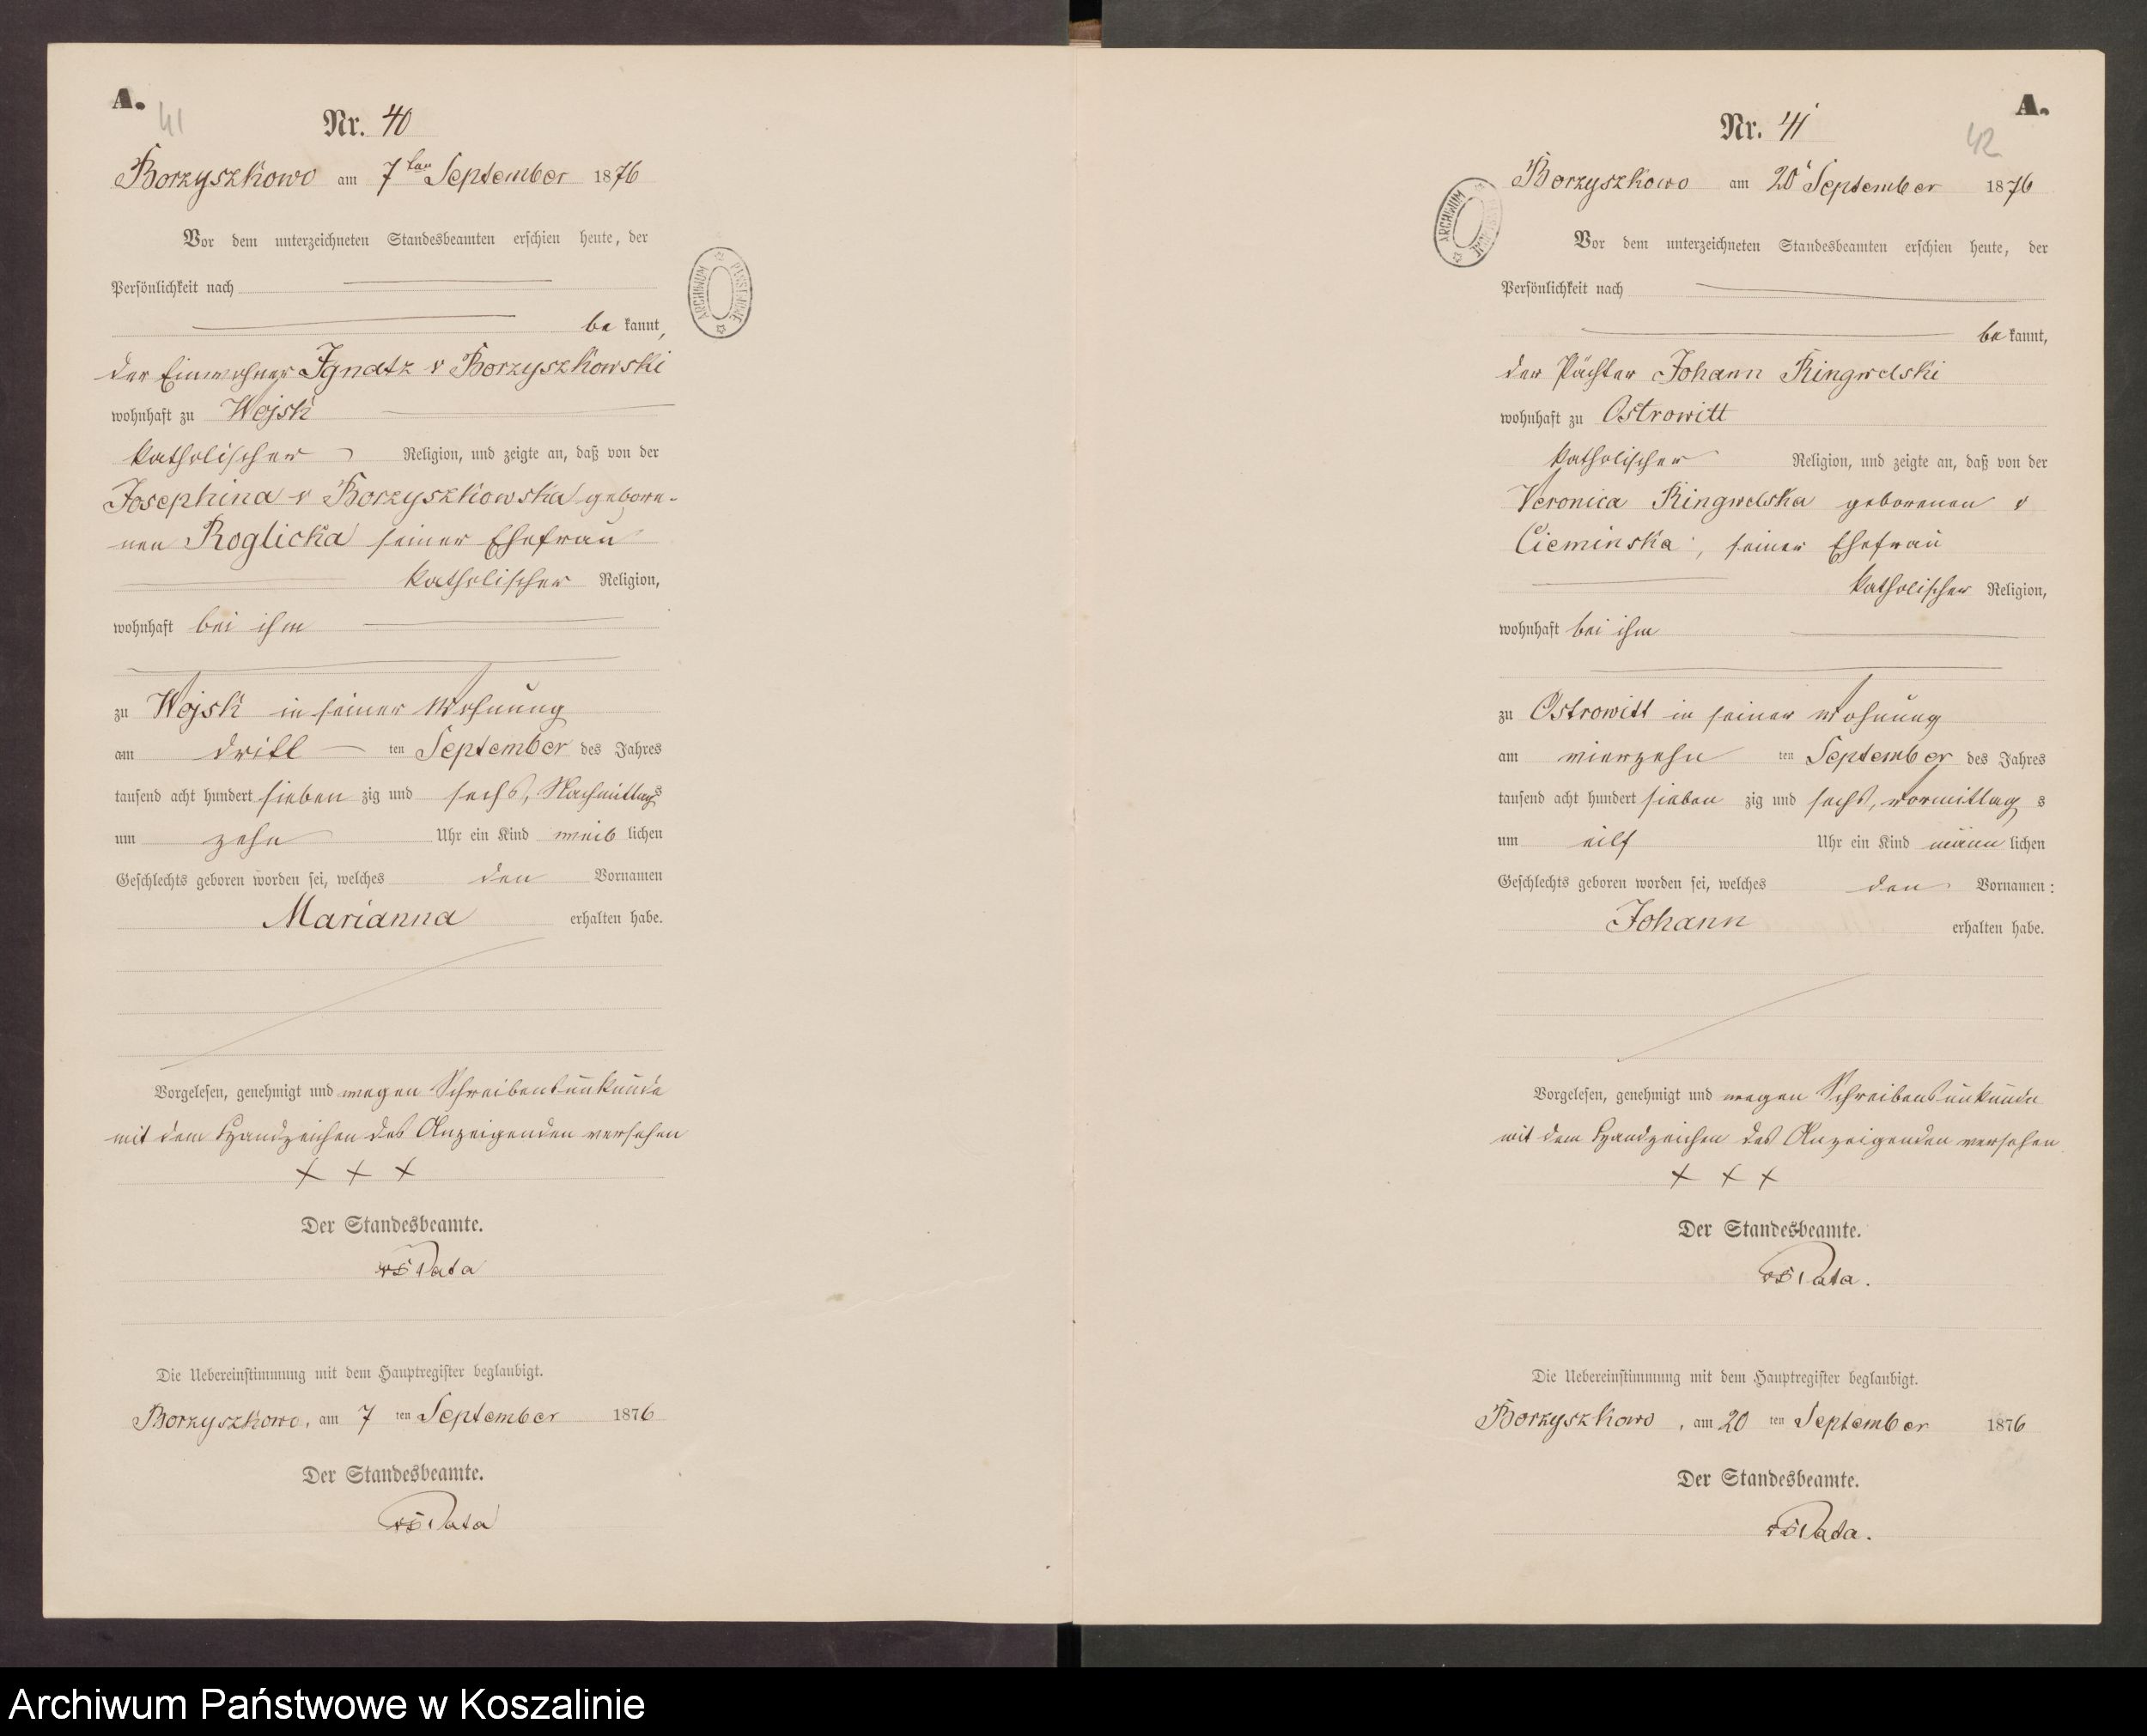 A.
41
Nr. 40
Borzyszkowo am 7ten September 1876
Vor dem unterzeichneten Standesbeamten erschien heute, der
Persönlichkeit nach
be kannt,
der Einwohner Ignatz v Borzyszkowski
wohnhaft zu Wojsk
katholischer Religion, und zeigte an, daß von der
Josephina v Borzyszkowska gebore-
nen Roglicka seiner Ehefrau
katholischer Religion,
wohnhaft bei ihm
zu Wojsk in seiner Wohnung
am dritt ten September des Jahres
tausend acht hundert sieben zig und sechs, Nachmittags
um zehn Uhr ein Kind weib lichen
Geschlechts geboren worden sei, welches den Vornamen
Marianna erhalten habe.
Vorgelesen, genehmigt und wegen Schreibensunkunde
mit dem Handzeichen des Anzeigenden versehen
+ + +
Der Standesbeamte.
Pata
Die Uebereinstimmung mit dem Hauptregister beglaubigt.
Borzyszkowo, am 7 ten September 1876
Der Standesbeamte.
Pata
ARCHIWUM PAŃSTWOWE
A.
42
Nr. 41
Borzyszkowo am 20 September 1876
Vor dem unterzeichneten Standesbeamten erschien heute, der
Persönlichkeit nach
be kannt,
der Pächter Johann Ringwelski
wohnhaft zu Ostrowitt
katholischer Religion, und zeigte an, daß von der
Veronica Ringwelska geborenen v
Cieminska, seiner Ehefrau
katholischer Religion,
wohnhaft bei ihm
zu Ostrowitt in seiner Wohnung
am vierzehn ten September des Jahres
tausend acht hundert sieben zig und sechs, vormittag s
um eilf Uhr ein Kind männ lichen
Geschlechts geboren worden sei, welches den Vornamen:
Johann erhalten habe.
Vorgelesen, genehmigt und wegen Schreibensunkunde
mit dem Handzeichen des Anzeigenden versehen
+ + +
Der Standesbeamte.
Pata.
Die Uebereinstimmung mit dem Hauptregister beglaubigt.
Borzyszkowo, am 20 ten September 1876
Der Standesbeamte.
Pata.
ARCHIWUM PAŃSTWOWE
Archiwum Państwowe w Koszalinie